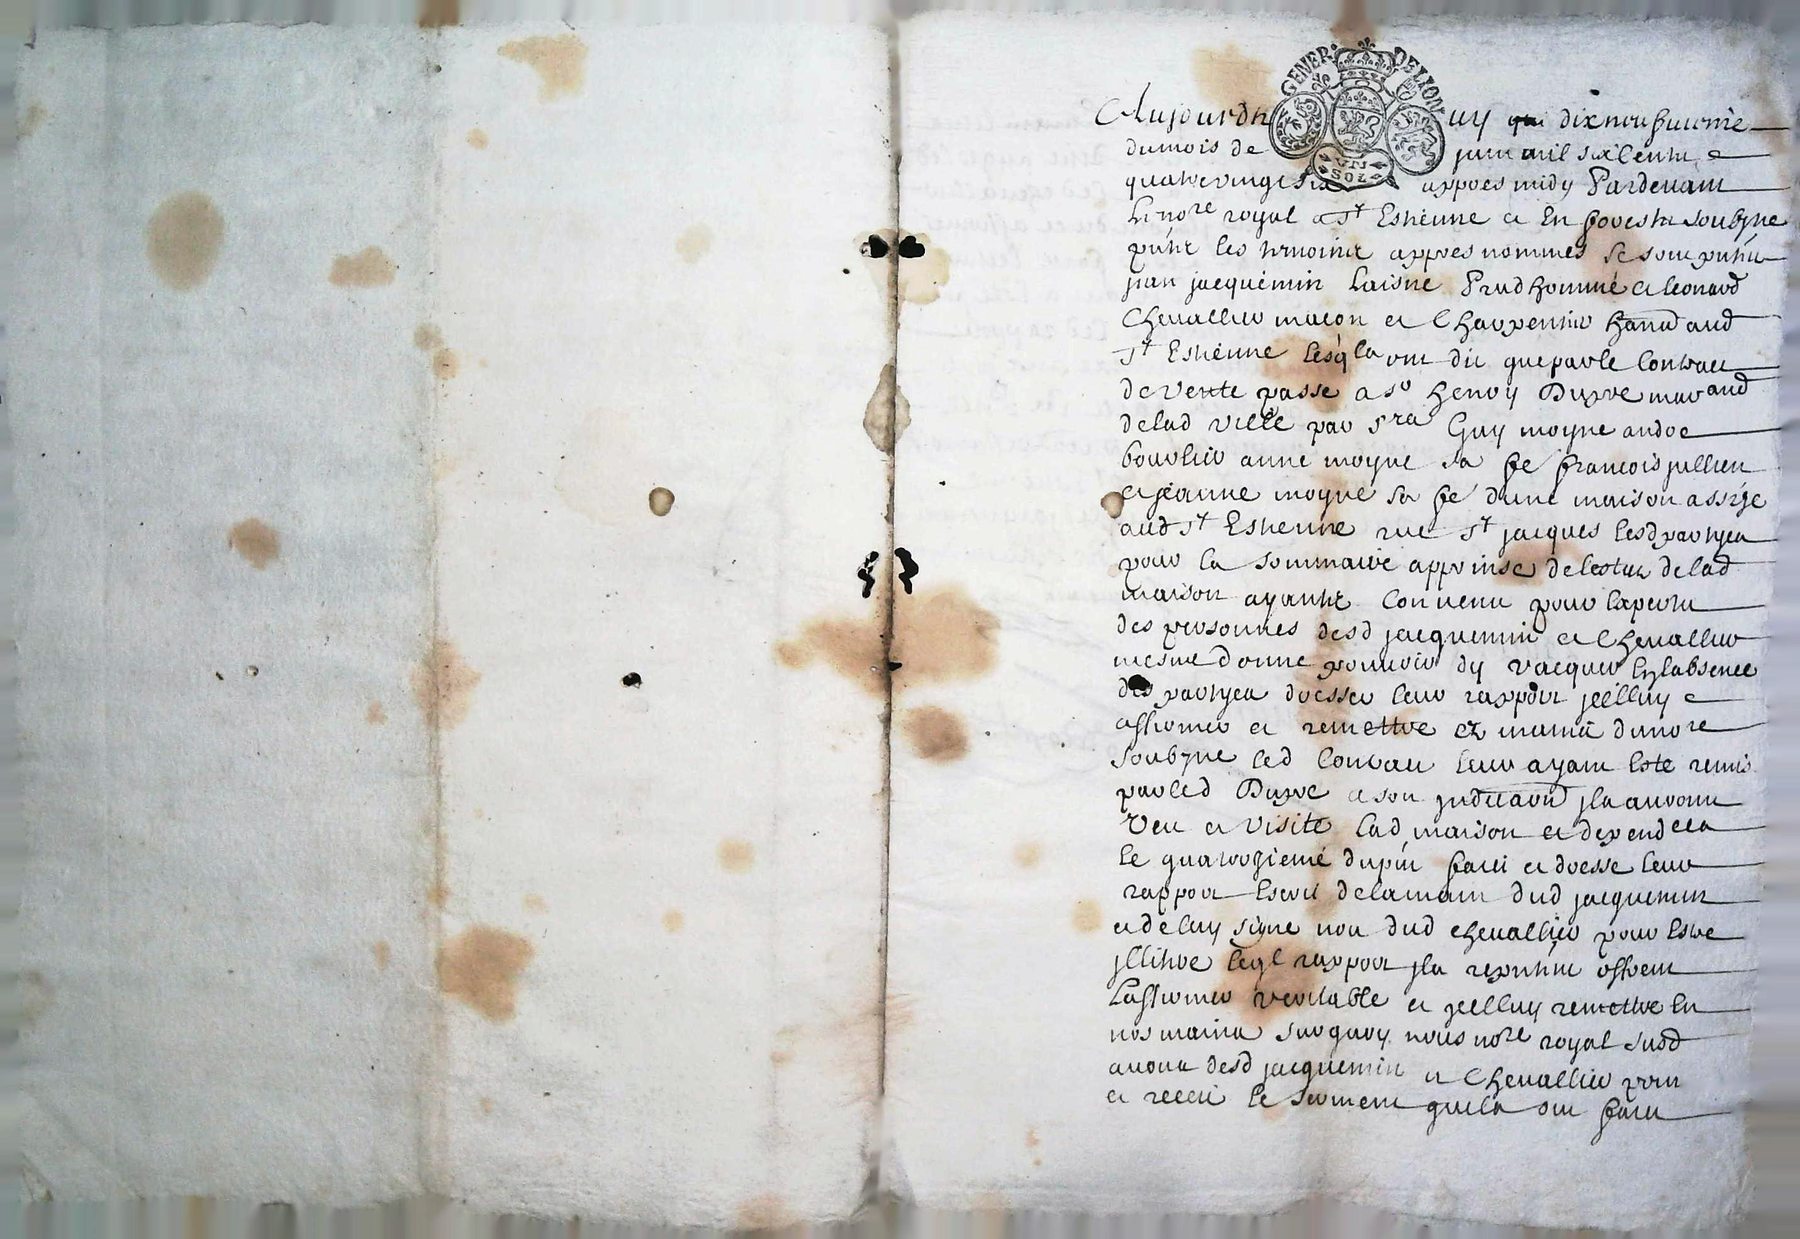 GENER. DE LION
UN SOL
Aujourdhuy dixneufviesme
du mois de juin mil six cents e
quatre vingt six appres midy Pardevant
Le nore royal a St Estienne et En forests soubzne
pñts les tesmoings appres nommés se sont pñtes
jean jacquemin Laisne Prudhomme et leonard
Chevallier macon et Charpentier habitt aud
St Estienne lesqls ont dit que par le contract
de vente passe a sr henry Dupre march
de lad ville par srs Guy moyne
anne moyne sa fe francois jullien
et jeanne moyne sa fe dune maison assize
aud St Estienne rue St jacques lesd partyes
pour la sommaire apprinse de lestat de lad
maison ayants convenu pour experts
des personnes desd jacquemin et Chevallier
mesme donne pouvoir dy vacquer En labsence
des partyes dresser leur rapport jcelluy
affirmer et remettre ez mains du nore
soubzne led contract leur ayant Este remis
par led Dupre jls auront
Veu et visite lad maison et dependces
le quatorzieme du pñt faict et dresse leur
rapport Escrit de la main dud jacquemin
et de luy signe non dud chevallier pour Estre
jllitere leql rapport jls offrent
Laffirmer veritable et jcelluy remettre En
nos mains surquoy nous nore royal susd
avons desd jacquemin et Chevallier prins
et receu le serment quils ont faict